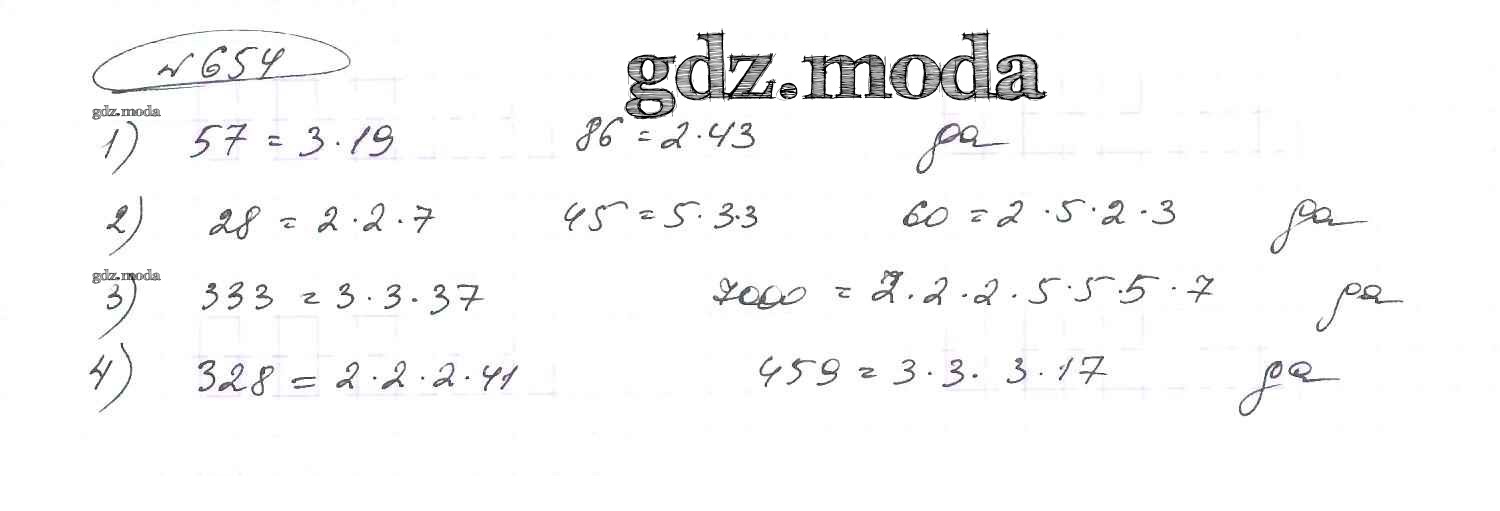 №654
gdz.moda
gdz.moda
1) 57 = 3·19 86 = 2·43 да
2) 28 = 2·2·7 45 = 5·3·3 60 = 2·5·2·3 да
gdz.moda
3) 333 = 3·3·37 7000 = 2·2·2·5·5·5·7 да
4) 328 = 2·2·2·41 459 = 3·3·3·17 да